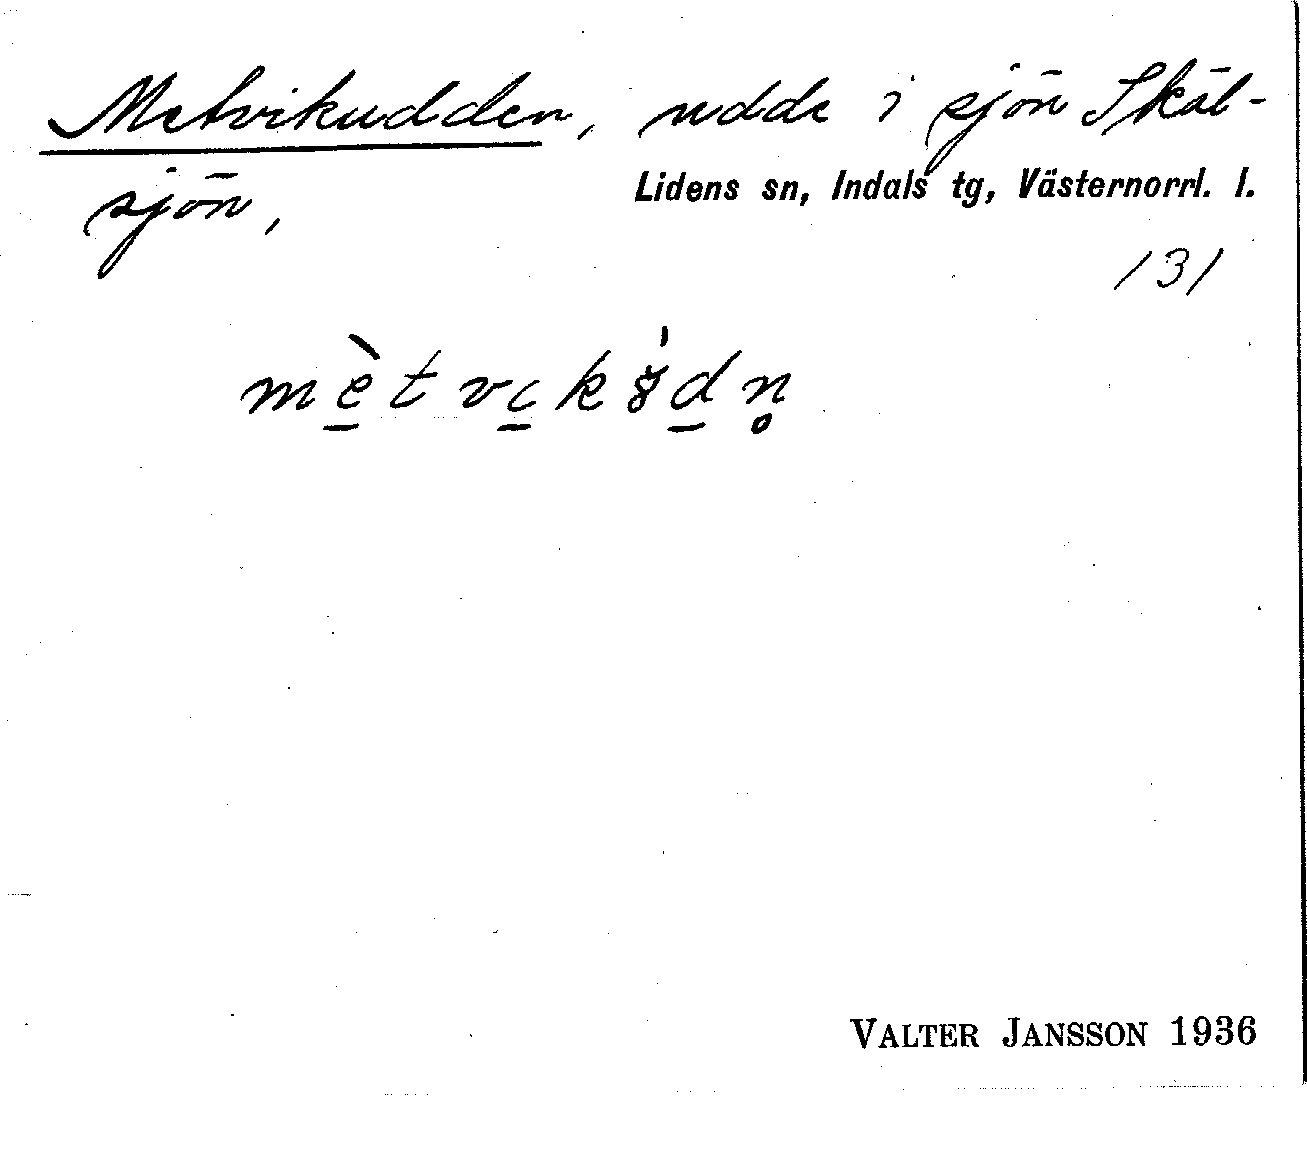 Metvikudden, udde i sjön Skäl-
sjön,
Lidens sn, Indals tg, Västernorrl. l.
131
VALTER JANSSON 1936